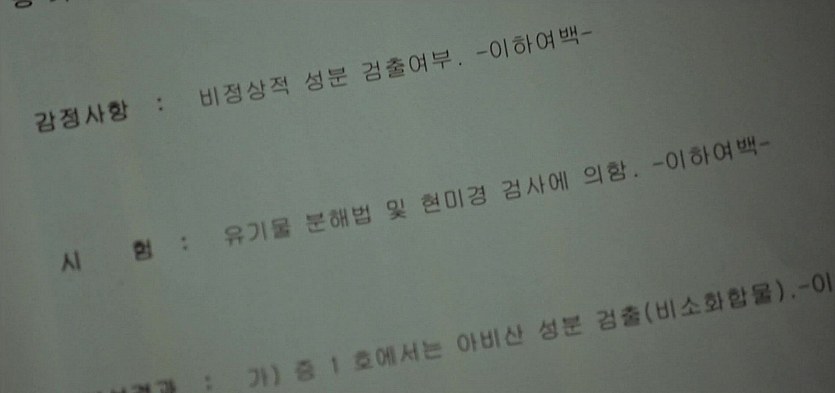 감정사항 : 비정상적 성분 검출여부. -이하여백-
시 험 : 유기물 분해법 및 현미경 검사에 의함. -이하여백-
결과 : 가) 증 1 호에서는 아비산 성분 검출(비소화합물).-이